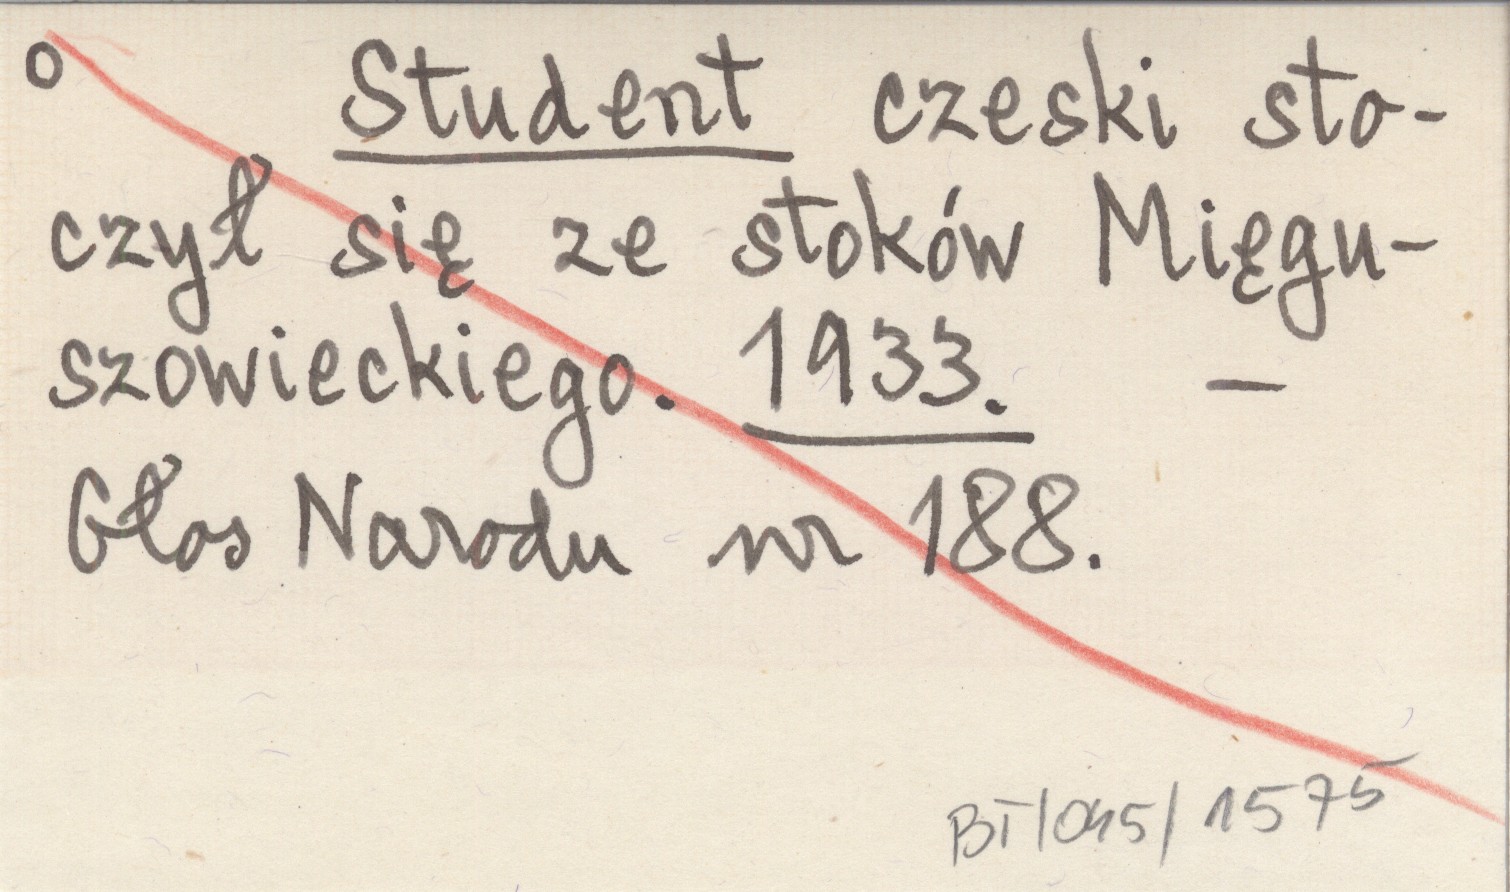 o Student czeski sto-
czył się ze stoków Mięgu-
szowieckiego. 1933. –
Głos Narodu nr 188.
BT/045/1575